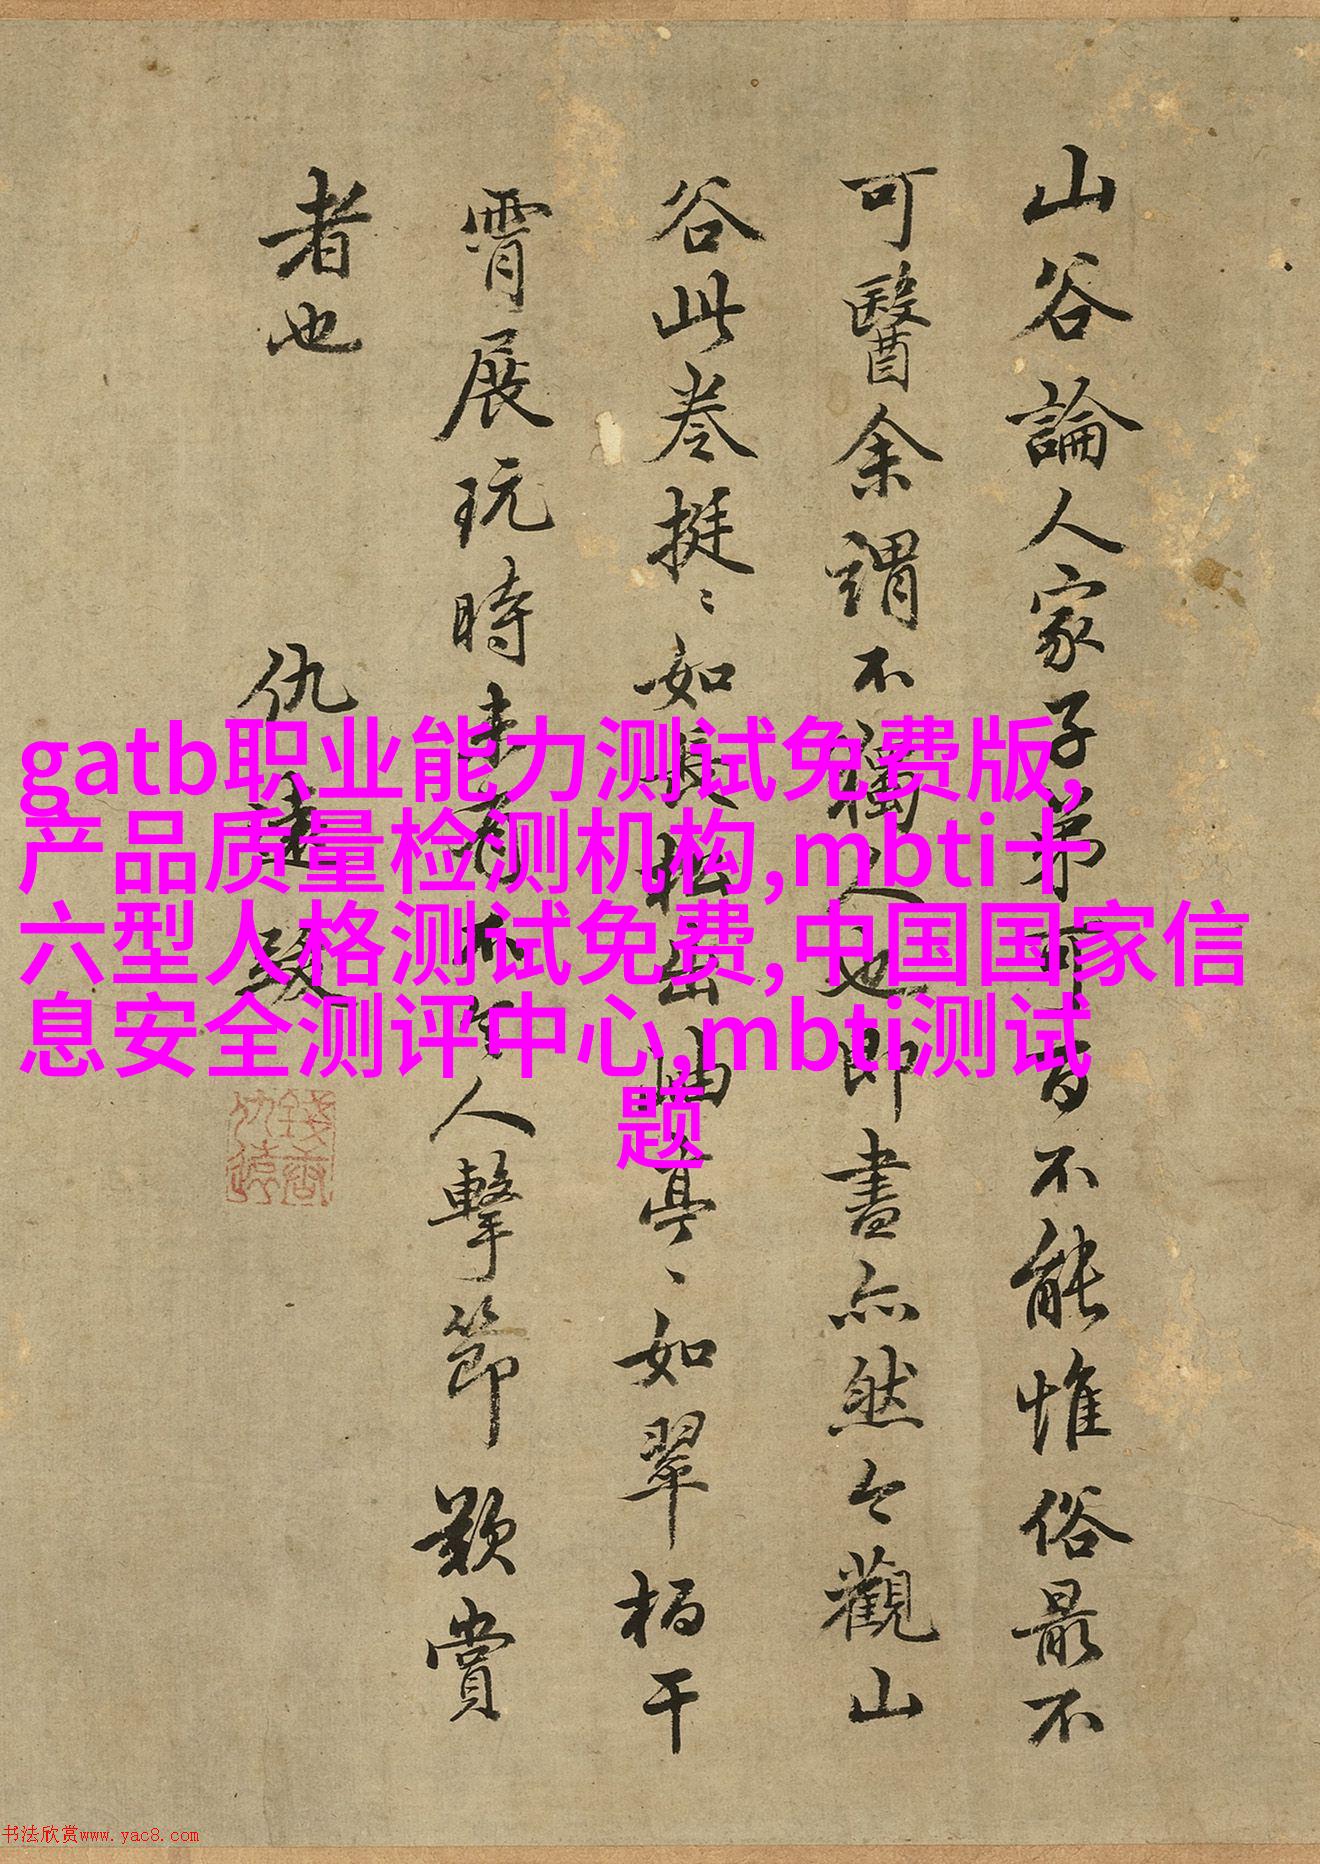 山谷論人家子弟可百不能惟俗最不
可醫余謂不獨人也即畫亦然今觀山
谷此卷挺〻如長松出岫亭〻如翠栢干
霄展玩時未有不令人擊節歎賞
者也
仇遠
錢唐仇遠
gatb职业能力测试免费版,
产品质量检测机构,mbti十
六型人格测试免费,中国国家信
息安全测评中心,mbti测试
题
书法欣赏www.yac8.com